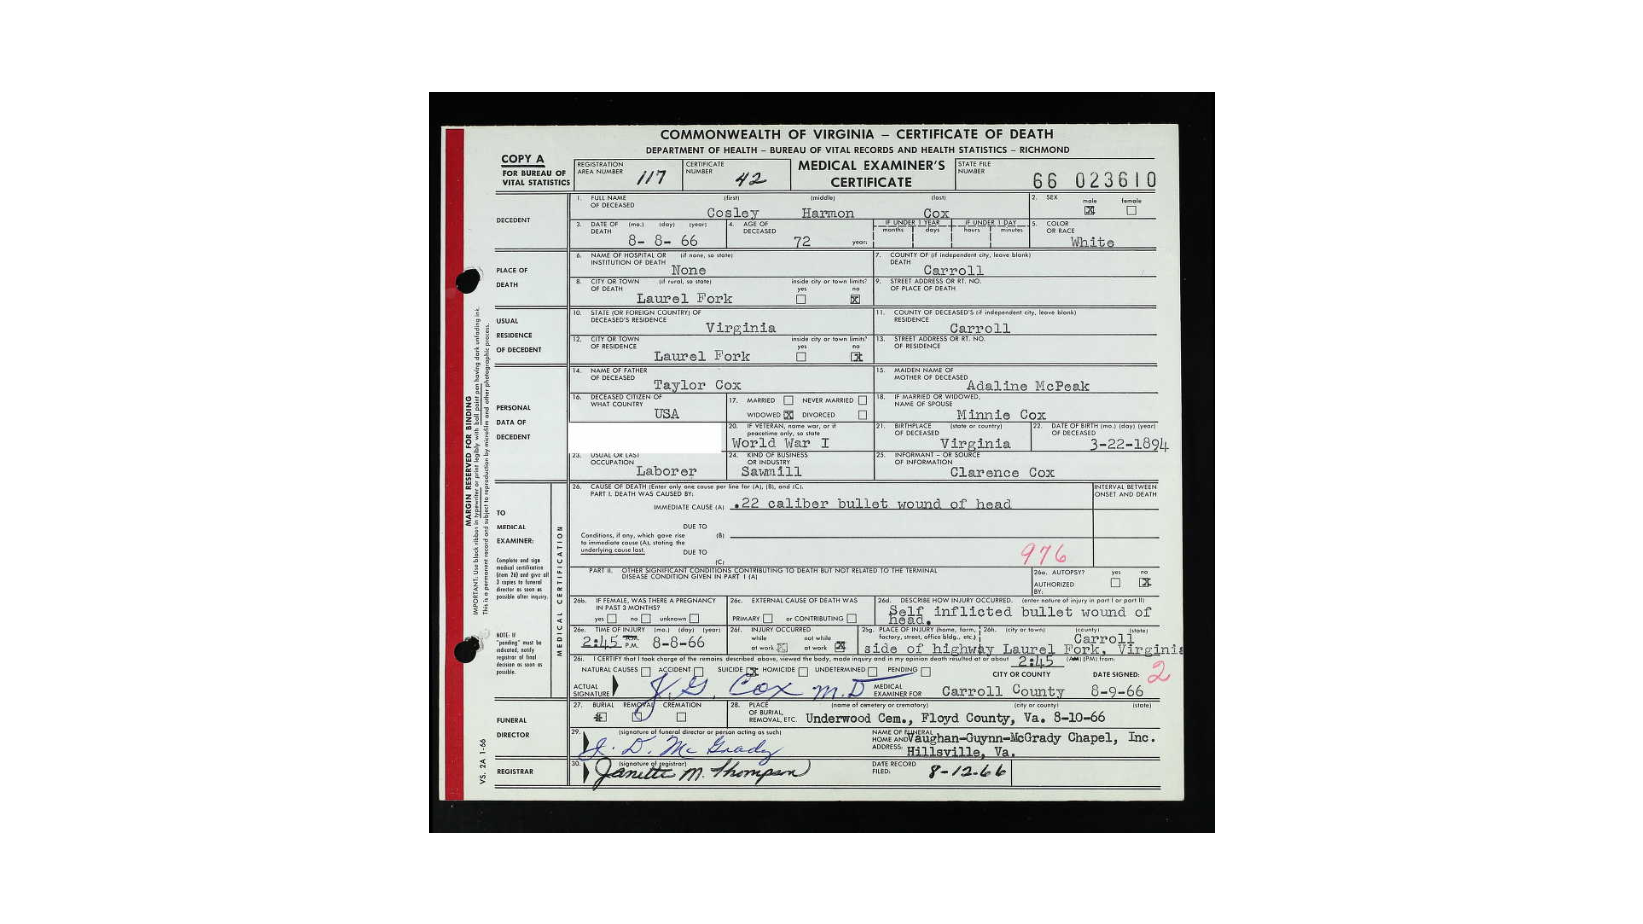 COMMONWEALTH OF VIRGINIA – CERTIFICATE OF DEATH
DEPARTMENT OF HEALTH – BUREAU OF VITAL RECORDS AND HEALTH STATISTICS – RICHMOND
COPY A
FOR BUREAU OF
VITAL STATISTICS
REGISTRATION
AREA NUMBER 117
CERTIFICATE
NUMBER 42
MEDICAL EXAMINER'S
CERTIFICATE
STATE FILE
NUMBER
66 023610
DECEDENT
1. FULL NAME
OF DECEASED
(first) (middle) (last)
Cosley Harmon Cox
2. SEX
male female
3. DATE OF (mo.) (day) (year)
DEATH
8- 8- 66
4. AGE OF
DECEASED
72 years
IF UNDER 1 YEAR IF UNDER 1 DAY
months days hours minutes
5. COLOR
OR RACE
White
PLACE OF
DEATH
6. NAME OF HOSPITAL OR (if none, so state)
INSTITUTION OF DEATH
None
7. COUNTY OF (if independent city, leave blank)
DEATH
Carroll
8. CITY OR TOWN (if rural, so state)
OF DEATH
Laurel Fork
inside city or town limits?
yes no
9. STREET ADDRESS OR RT. NO.
OF PLACE OF DEATH
USUAL
RESIDENCE
OF DECEDENT
10. STATE (OR FOREIGN COUNTRY) OF
DECEASED'S RESIDENCE
Virginia
11. COUNTY OF DECEASED'S (if independent city, leave blank)
RESIDENCE
Carroll
12. CITY OR TOWN
OF RESIDENCE
Laurel Fork
inside city or town limits?
yes no
13. STREET ADDRESS OR RT. NO.
OF RESIDENCE
PERSONAL
DATA OF
DECEDENT
14. NAME OF FATHER
OF DECEASED
Taylor Cox
15. MAIDEN NAME OF
MOTHER OF DECEASED
Adaline McPeak
16. DECEASED CITIZEN OF
WHAT COUNTRY
USA
17. MARRIED NEVER MARRIED
WIDOWED DIVORCED
18. IF MARRIED OR WIDOWED,
NAME OF SPOUSE
Minnie Cox
20. IF VETERAN, name war, or if
peacetime only, so state
World War I
21. BIRTHPLACE (state or country)
OF DECEASED
Virginia
22. DATE OF BIRTH (mo.) (day) (year)
OF DECEASED
3-22-1894
23. USUAL OR LAST
OCCUPATION
Laborer
24. KIND OF BUSINESS
OR INDUSTRY
Sawmill
25. INFORMANT – OR SOURCE
OF INFORMATION
Clarence Cox
MARGIN RESERVED FOR BINDING
IMPORTANT: Use black ribbon in typewriter or print legibly with ball point pen having dark unfading ink.
This is a permanent record and subject to reproduction by microfilm and other photographic process.
VS. 2A 1-66
TO
MEDICAL
EXAMINER:
Complete and sign
medical certification
(item 26) and give all
3 copies to funeral
director as soon as
possible after inquiry.
NOTE: If
"pending" must be
indicated, notify
registrar of final
decision as soon as
possible.
MEDICAL CERTIFICATION
26. CAUSE OF DEATH (Enter only one cause per line for (A), (B), and (C).
PART I. DEATH WAS CAUSED BY:
INTERVAL BETWEEN
ONSET AND DEATH
IMMEDIATE CAUSE (A) .22 caliber bullet wound of head
DUE TO
(B)
Conditions, if any, which gave rise
to immediate cause (A), stating the
underlying cause last.
DUE TO
(C)
976
PART II. OTHER SIGNIFICANT CONDITIONS CONTRIBUTING TO DEATH BUT NOT RELATED TO THE TERMINAL
DISEASE CONDITION GIVEN IN PART I (A)
26a. AUTOPSY? yes no
AUTHORIZED
BY:
26b. IF FEMALE, WAS THERE A PREGNANCY
IN PAST 3 MONTHS?
yes no unknown
26c. EXTERNAL CAUSE OF DEATH WAS
PRIMARY or CONTRIBUTING
26d. DESCRIBE HOW INJURY OCCURRED. (enter nature of injury in part I or part II)
Self inflicted bullet wound of
head.
26e. TIME OF INJURY (mo.) (day) (year)
2:45 P.M. 8-8-66
26f. INJURY OCCURRED
while not while
at work at work
26g. PLACE OF INJURY (home, farm,
factory, street, office bldg., etc.)
26h. (city or town) (county) (state)
Carroll
side of highway Laurel Fork, Virginia
26i. I CERTIFY that I took charge of the remains described above, viewed the body, made inquiry and in my opinion death resulted at or about 2:45 (AM) (PM) from:
NATURAL CAUSES ACCIDENT SUICIDE HOMICIDE UNDETERMINED PENDING
CITY OR COUNTY DATE SIGNED:
2
ACTUAL
SIGNATURE
J. G. Cox M.D
MEDICAL
EXAMINER FOR
Carroll County 8-9-66
FUNERAL
DIRECTOR
27. BURIAL REMOVAL CREMATION
28. PLACE
OF BURIAL,
REMOVAL, ETC.
(name of cemetery or crematory) (city or county) (state)
Underwood Cem., Floyd County, Va. 8-10-66
29. (signature of funeral director or person acting as such)
J. D. McGrady
NAME OF FUNERAL
HOME AND
ADDRESS:
Vaughan-Guynn-McGrady Chapel, Inc.
Hillsville, Va.
REGISTRAR
30. (signature of registrar)
Janette M. Thompson
DATE RECORD
FILED:
8-12-66